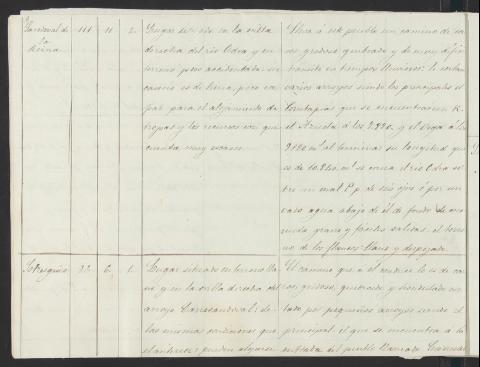 Sandoval de la Reina 111 11 2
Lugar situado en la orilla
derecha del rio Odra y en
terreno poco accidentado su
caserio es de tierra, pero ca
paz para el alojamiento de
tropas y los recursos con que
cuenta muy escasos.
Lleva á ser pueblo un camino de ca
rros gredoso quebrado y de muy dificil
transito en tiempos lluviosos: le cortan
varios arroyos siendo los principales el
que se encuentra en K.
el á los y el á los
al terminar su longitud que
es de se cruza el rio Odra so
bre un mal P.p de seis ojos ó por un
vado agua abajo de él de fondo de me
nuda grava y faciles salidas. el terre
no de los flancos llano y despejado.
33 6 1
Lugar situado en terreno lla
no y en la orilla derecha del
arroyo de
las mismas condiciones que
el anterior: pueden alojarse
El camino que á el conduce lo es de car
ros gredoso, quebrado y
tado por pequeños arroyos siendo el
principal el que se encuentra á la
entrada del pueblo llamado